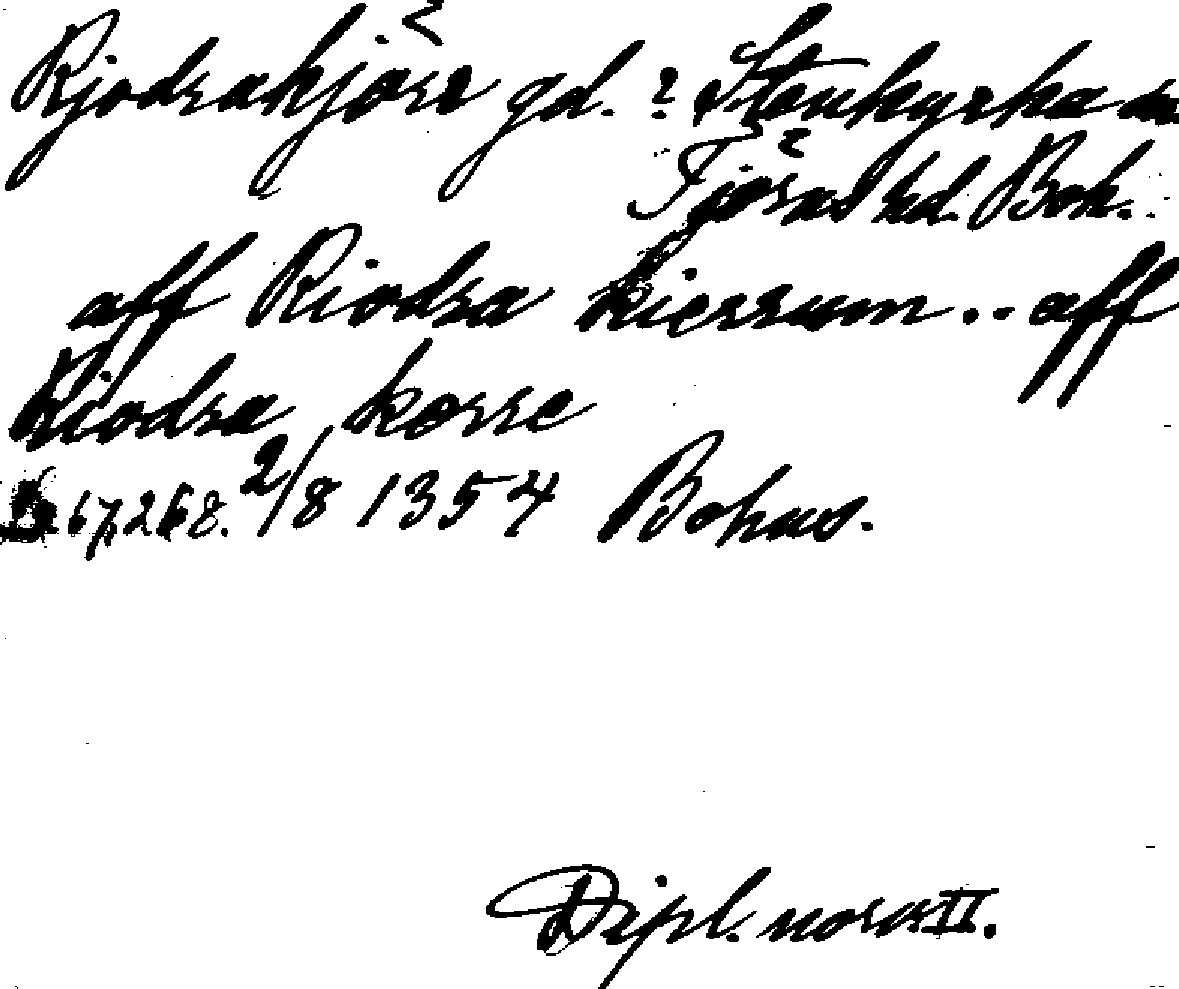 Rjodrakjörr gd. ? Stenkyrka sn
Tjörns hd. Boh.
aff Riodra kierrum .. aff
Riodra kørre
S. 267, 268. 2/8 1354 Bohus.
Dipl. norv. II.